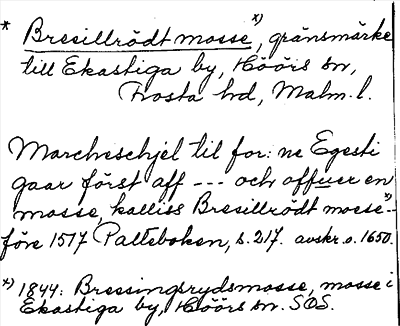 * Bresillrödt mosse *), gränsmärke
till Ekastiga by, Höörs sn,
Frosta hd, Malm. l.
Marcheschjel til for: ne Egesti
gaar först aff --- och offuer en
mosse, kalliss Bresillrödt mosse *)--
före 1517 Palteboken, s. 217. avskr. o. 1650.
*) 1844: Bressingsrydsmosse, mosse i
Ekastiga by, Höörs sn. SOS.